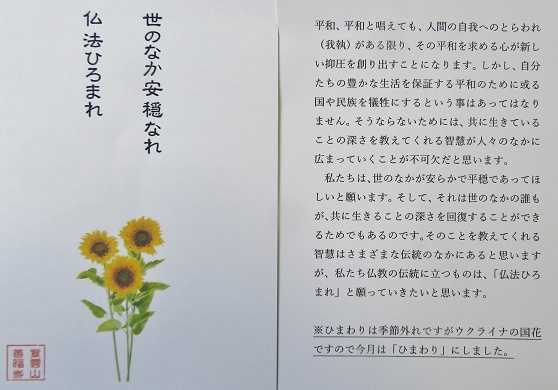 世のなか安穏なれ
仏法ひろまれ
平和、平和と唱えても、人間の自我へのとらわれ
(我執)がある限り、その平和を求める心が新し
い抑圧を創り出すことになります。しかし、自分
たちの豊かな生活を保証する平和のために或る
国や民族を犠牲にするという事はあってはなり
ません。そうならないためには、共に生きている
ことの深さを教えてくれる智慧が人々のなかに
広まっていくことが不可欠だと思います。
私たちは、世のなかが安らかで平穏であってほ
しいと願います。そして、それは世のなかの誰も
が、共に生きることの深さを回復することができ
るためでもあるのです。そのことを教えてくれる
智慧はさまざまな伝統のなかにあると思います
が、私たち仏教の伝統に立つものは、「仏法ひろ
まれ」と願っていきたいと思います。
※ひまわりは季節外れですがウクライナの国花
ですので今月は「ひまわり」にしました。